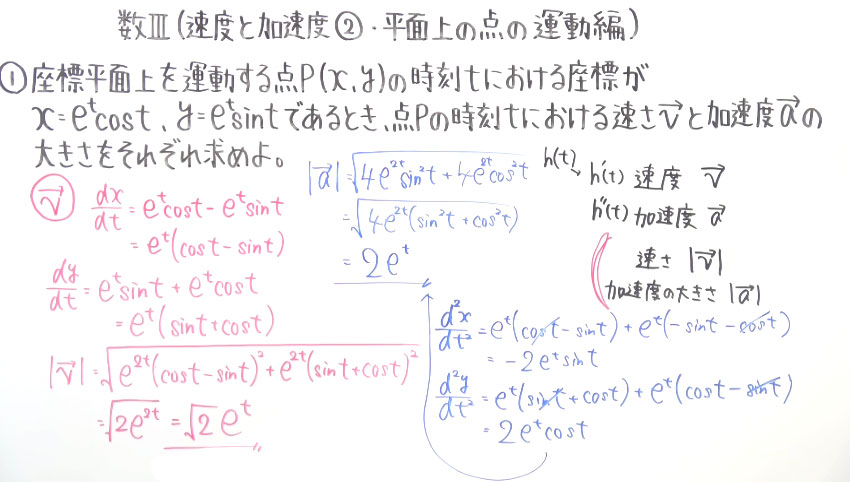 数Ⅲ(速度と加速度②・平面上の点の運動編)
①座標平面上を運動する点P(x,y)の時刻tにおける座標が
x=eᵗcost、y=eᵗsintであるとき、点Pの時刻tにおける速さv→と加速度a→の
大きさをそれぞれ求めよ。
v→
dx/dt=eᵗcost-eᵗsint
=eᵗ(cost-sint)
dy/dt=eᵗsint+eᵗcost
=eᵗ(sint+cost)
|v→|=√(e²ᵗ(cost-sint)²+e²ᵗ(sint+cost)²)
=√(2e²ᵗ)=√2eᵗ
|a→|=√(4e²ᵗsin²t+4e²ᵗcos²t)
=√(4e²ᵗ(sin²t+cos²t))
=2eᵗ
h(t)
h'(t) 速度 v→
h''(t) 加速度 a→
速さ |v→|
加速度の大きさ |a→|
d²x/dt²=eᵗ(cost-sint)+eᵗ(-sint-cost)
=-2eᵗsint
d²y/dt²=eᵗ(sint+cost)+eᵗ(cost-sint)
=2eᵗcost